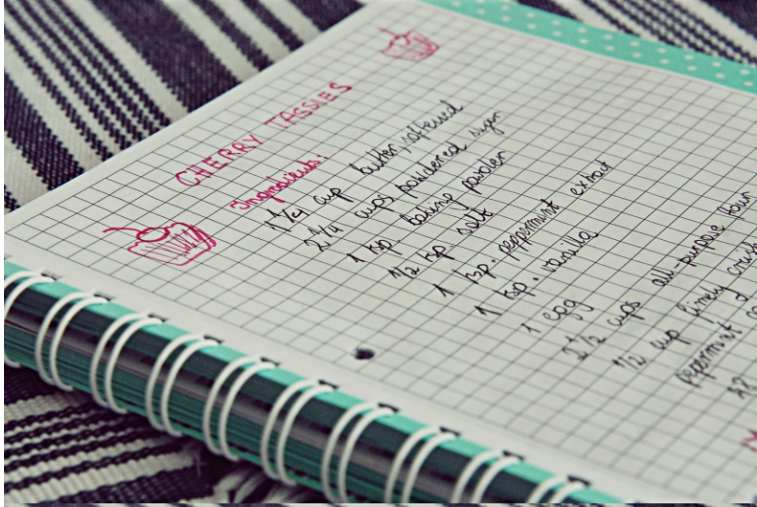 CHERRY TASSIES
Ingredients:
1 1/4 cup butter, softened
2 1/4 cups powdered sugar
1 tsp. baking powder
1/2 tsp. salt
1 tsp. peppermint extract
1 tsp. vanilla
1 egg
2 1/2 cups all-purpose flour
1/2 cup finely
peppermint
48